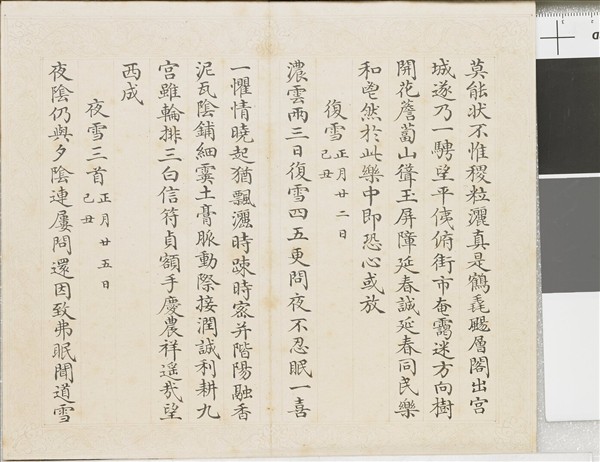 莫能狀不惟稷粒灑真是鶴毳颺層閣出宮
城遂乃一騁望平俯街市奄靄迷方向樹
開花簷蔔山聳玉屏障延春誠延春同民樂
和皂然於此樂中即恐心或放
復雪正月廿二日己丑
濃雲兩三日復雪四五更問夜不忍眠一喜
一懼情曉起猶飄灑時疎時密并階陽融香
泥瓦陰鋪細霙土膏脈動際接潤誠利耕九
宮雖輪排三白信符貞額手慶農祥遥哉望
西成
夜雪三首正月廿五日己丑
夜陰仍與夕陰連屢問還因致弗眠聞道雪